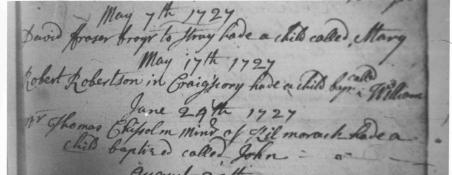 May 7th 1727
David Fraser to Stray had a child called Mary
May 17th 1727
Robert Robertson in Craigscony had a child bap: called William
June 24th 1727
Mr Thomas Chisolm Minr of Kilmorach had a
child baptized called John